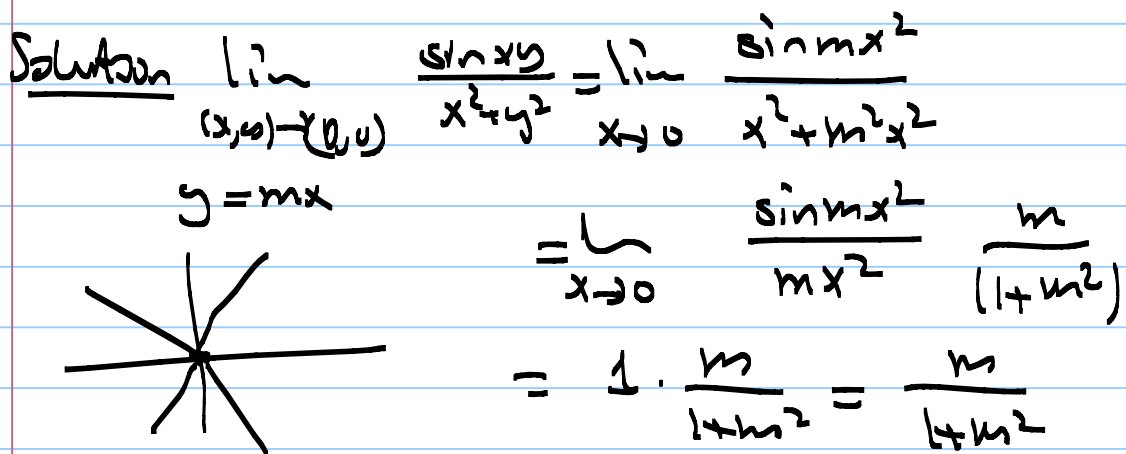 Solution lim (x,y)→(0,0) sin xy / x²+y² = lim x→0 sin mx² / x²+m²x²
y = mx
= lim x→0 sin mx² / mx² m / (1+m²)
= 1 · m / 1+m² = m / 1+m²